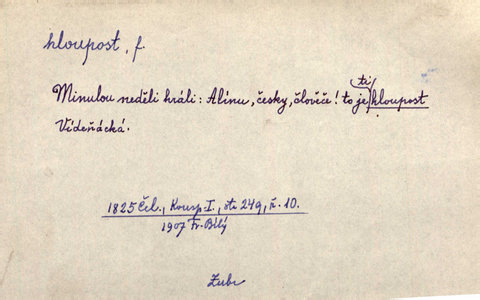 hloupost, f.
Minulou neděli hráli: Alínu, česky, člověče! to je ti hloupost
Vídeňácká.
1825 Čel., Kousp. I., str. 249, ř. 10.
1907 Fr. Bílý
Zubr